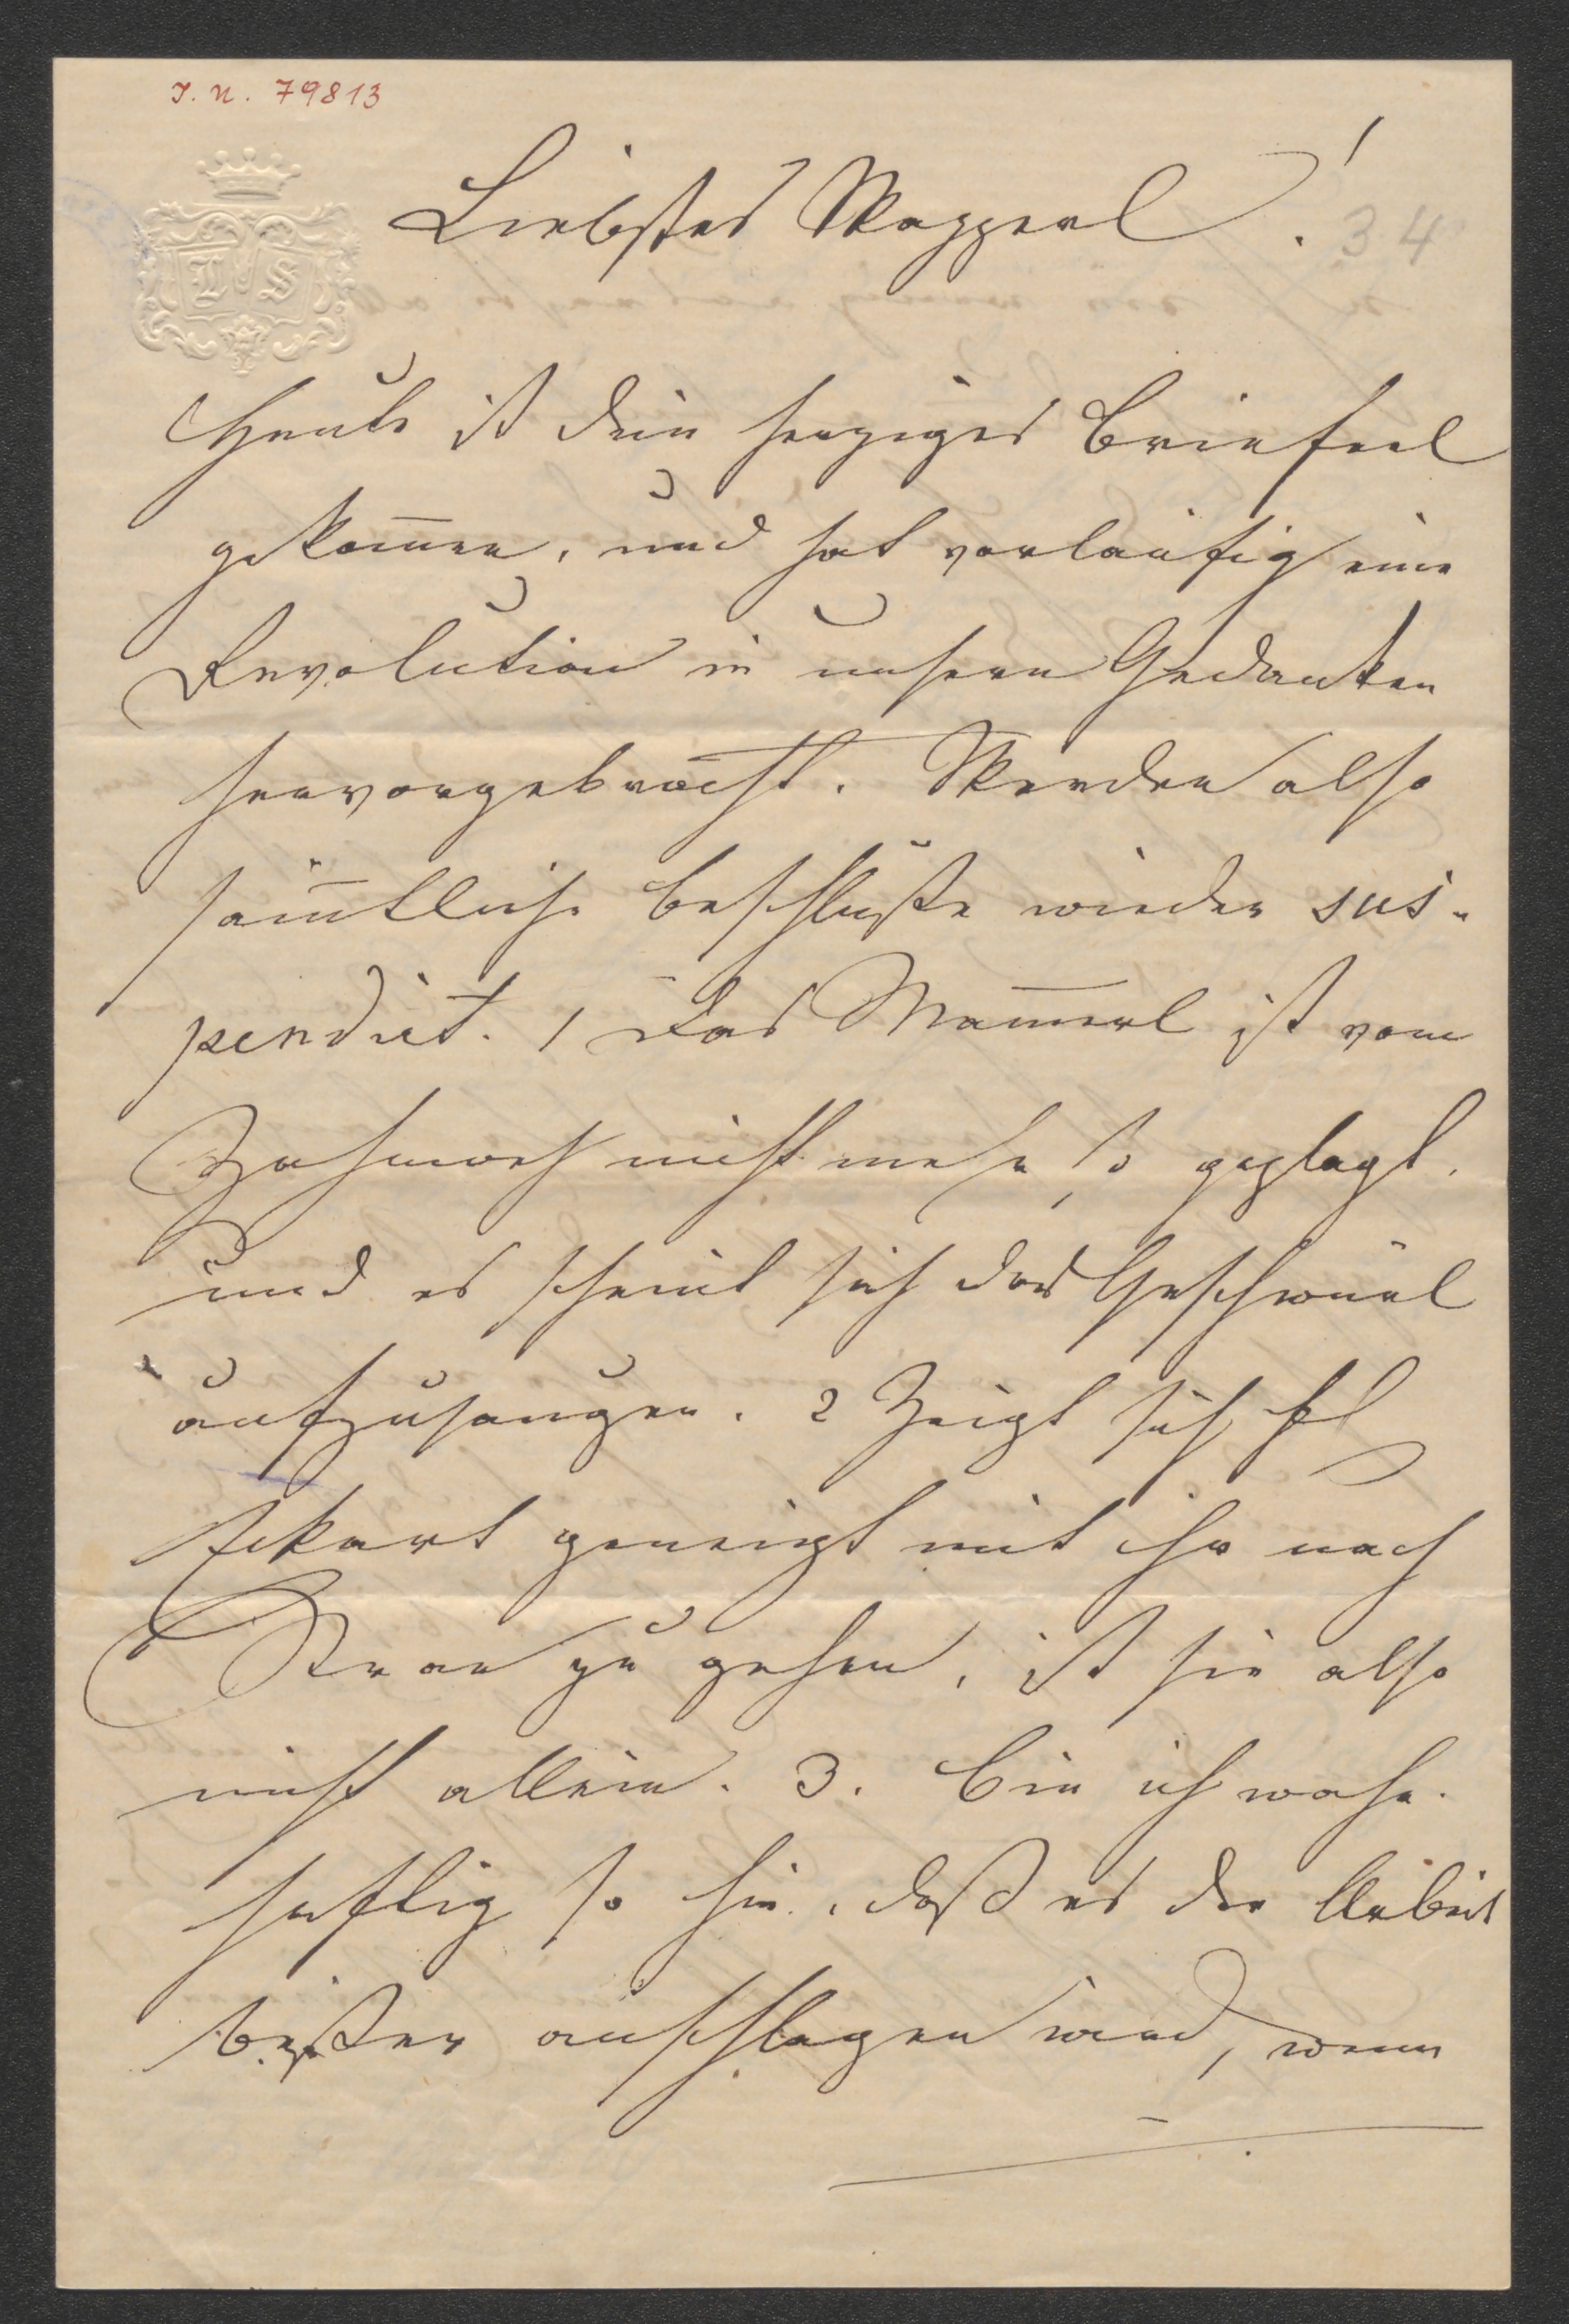 I. N. 79813
Liebstes Wapperl!
34
L S
Heute ist dein herziges Brieferl
gekom̅en, und hat vorläufig eine
Revolution in unseren Gedanken
hervorgebracht. Werden also
säm̅tliche Beschlüße wieder sus-
pendirt. 1 Das Mam̅erl ist vom
Zahnweh nicht mehr so geplagt.
und es scheint sich das Geschwürl
aufzusaugen. 2 Zeigt sich Frl
Eckart geneigt mit ihr nach
zu gehen, ist sie also
nicht allein. 3. Bin ich wahr-
haftig so hin, daß es der Arbeit
beßer anschlagen wird, wenn